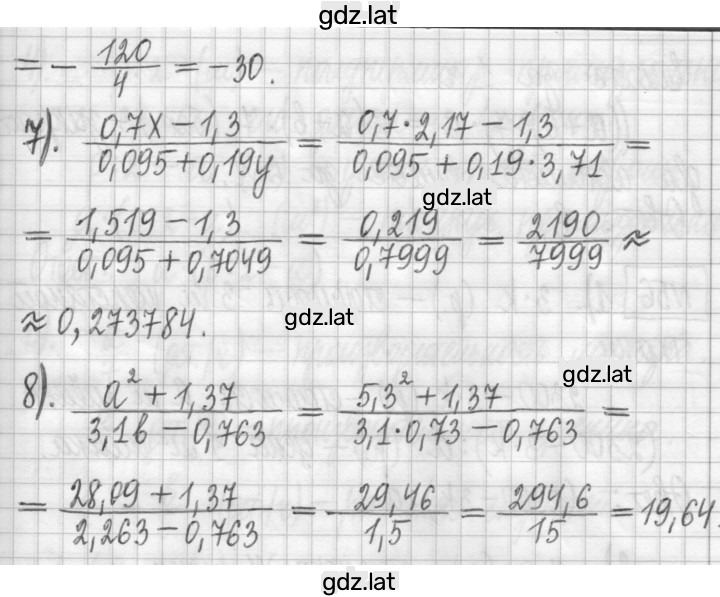 gdz.lat
= - 120/4 = -30.
7). (0,7x - 1,3)/(0,095 + 0,19y) = (0,7·2,17 - 1,3)/(0,095 + 0,19·3,71) =
gdz.lat
= (1,519 - 1,3)/(0,095 + 0,7049) = 0,219/0,7999 = 2190/7999 ≈
≈ 0,273784.
gdz.lat
gdz.lat
8). (a² + 1,37)/(3,1b - 0,763) = (5,3² + 1,37)/(3,1·0,73 - 0,763) =
= (28,09 + 1,37)/(2,263 - 0,763) = 29,46/1,5 = 294,6/15 = 19,64.
gdz.lat